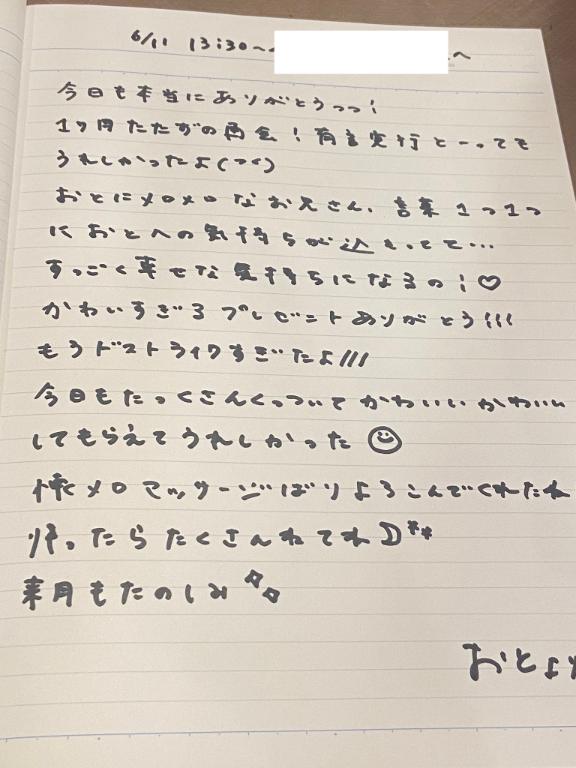 6/11 13:30〜 へ
今日も本当にありがとうっっ!
1ヶ月たたずの再会!有言実行とーっても
うれしかったよ
おとにメロメロなお兄さん、言葉1つ1つ
におとへの気持ちが込もってて…
すっごく幸せな気持ちになるの!♡
かわいすぎるプレゼントありがとう!!!
もうドストライクすぎたよ///
今日もたっくさんくっついてかわいいかわいい
してもらえてうれしかった☺
懐メロマッサージばりよろこんでくれたね
帰ったらたくさんねてね
来月もたのしみ
おとより